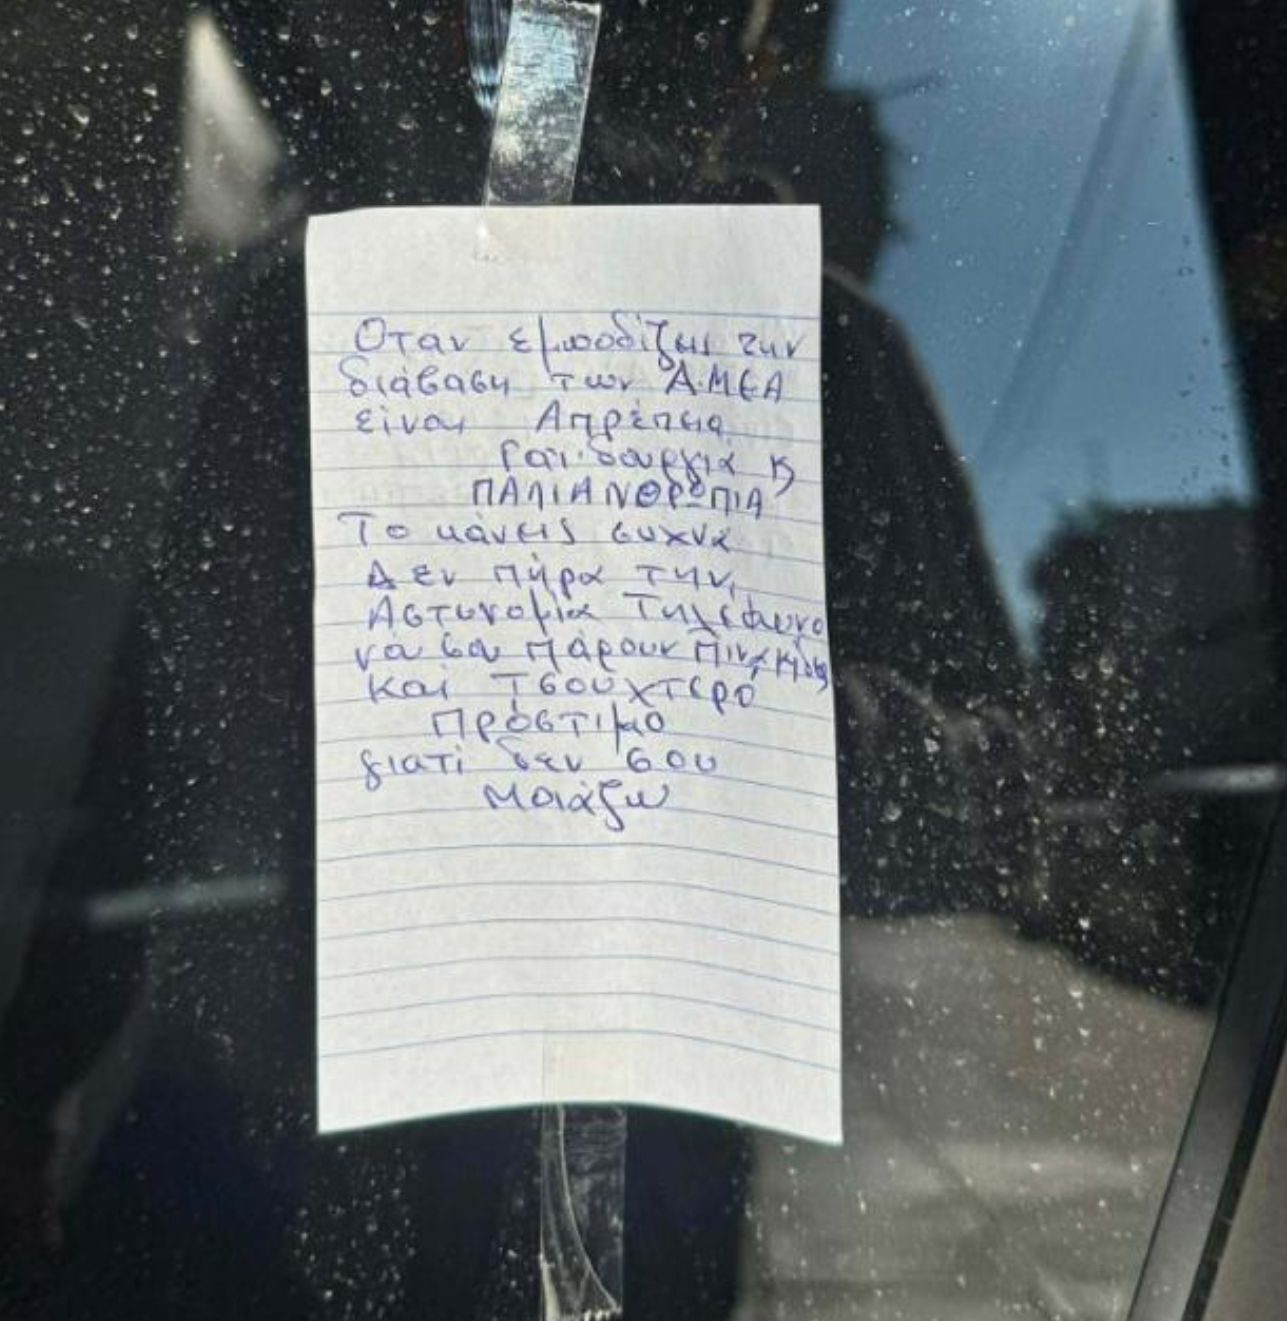 Οταν εμποδίζεις την
διάβαση των Α.ΜΕΑ
είναι Απρέπεια
Γαϊδουργιά κ
ΠΑΛΙΑΝΘΡΩΠΙΑ
Το κάνεις συχνά
Δεν πήρα την
Αστυνομία Τηλέφωνο
να σου πάρουν Πινακίδες
και Τσουχτερό
Πρόστιμο
γιατί δεν σου
Μοιάζω